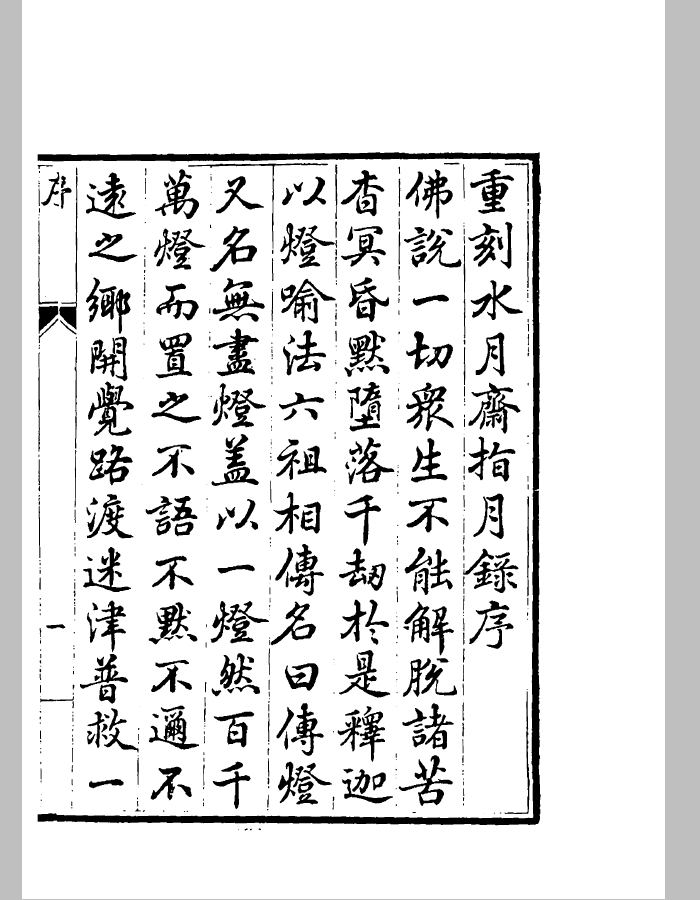 重刻水月齋指月錄序
佛說一切衆生不能解脫諸苦
杳冥昏默墮落千劫於是釋迦
以燈喻法六祖相傳名曰傳燈
又名無盡燈盖以一燈然百千
萬燈而置之不語不默不邇不
遠之鄉開覺路渡迷津普救一
序
一